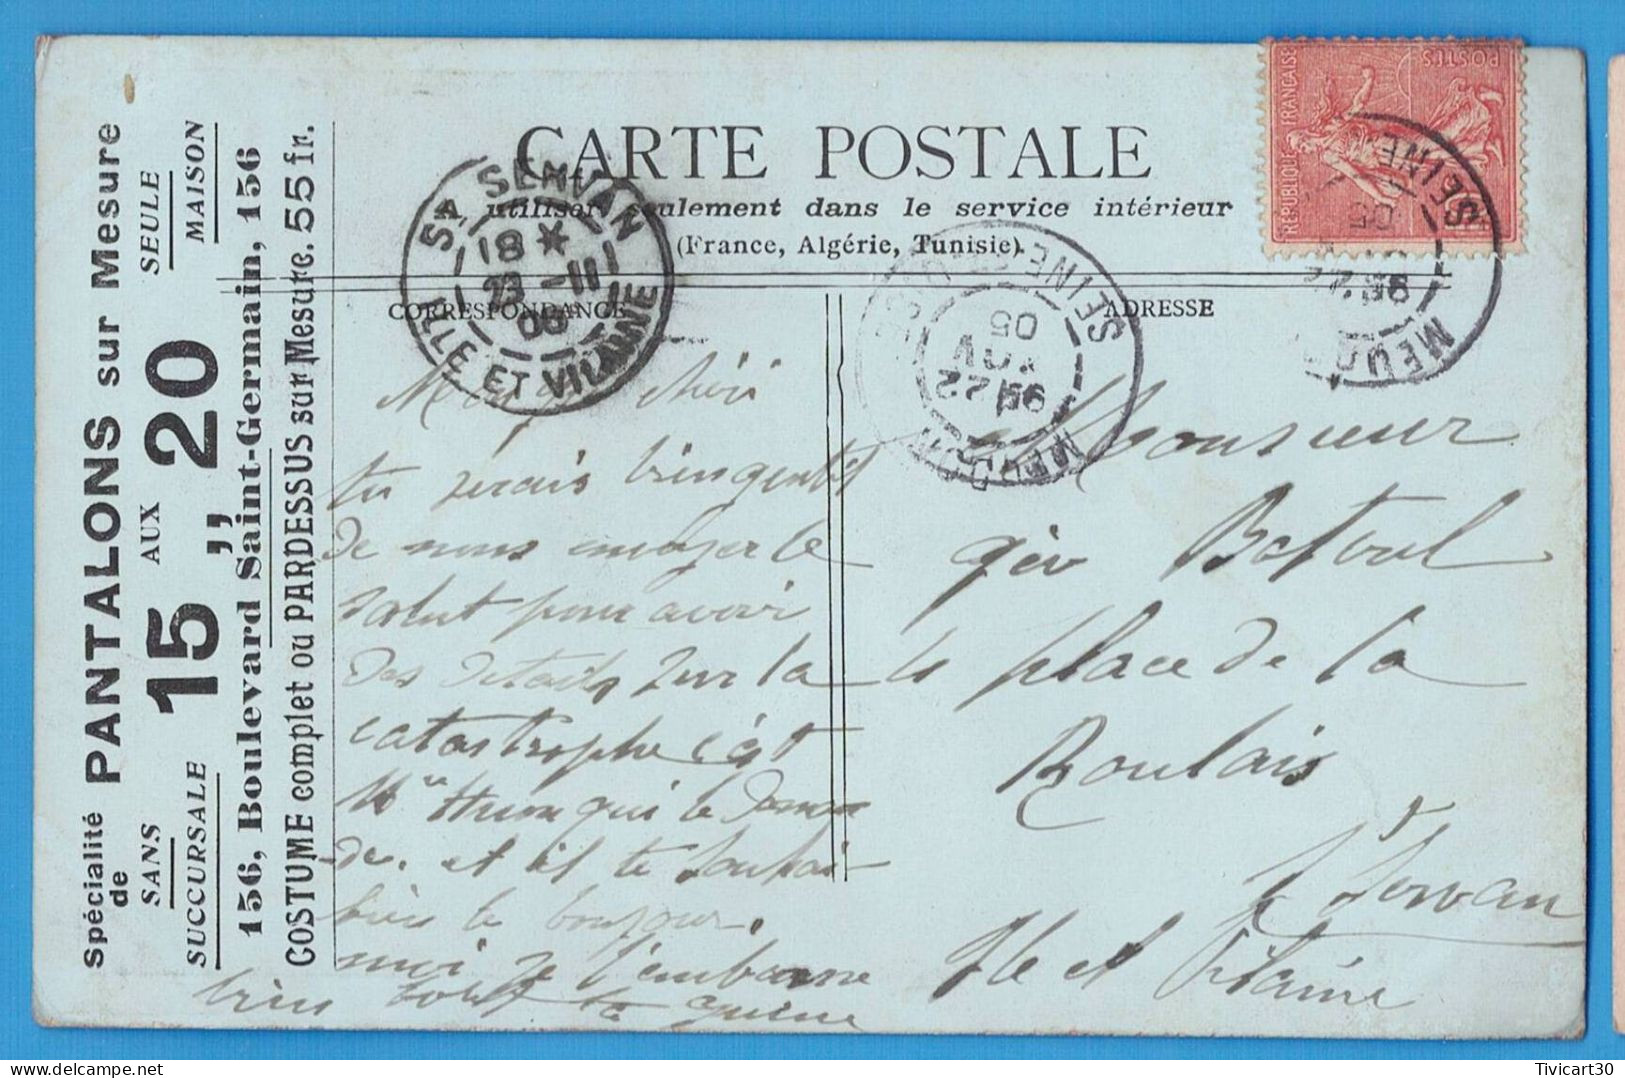 CARTE POSTALE
A utiliser seulement dans le service intérieur
(France, Algérie, Tunisie).
CORRESPONDANCE
ADRESSE
Spécialité de PANTALONS sur Mesure
SANS SUCCURSALE
15 AUX 20
SEULE MAISON
156, Boulevard Saint-Germain, 156
COSTUME complet ou PARDESSUS sur Mesure. 55 fr.
REPUBLIQUE FRANÇAISE
POSTES
ST SERVAN
18 * 
23 -11
05
ILLE ET VILAINE
MEUDON
22
NOV
05
SEINE
MEUDON
05
SEINE
chéri
tu serais bien gentil
de nous envoyer le
salut pour avoir
des details sur la
catastrophe c'est
qui le deman
de. et il te souhai
bien le bonjour.
moi je t'embrasse
bien
Monsieur
place de la
Roulais
St Servan
Ile et Vilaine
Tivicart30